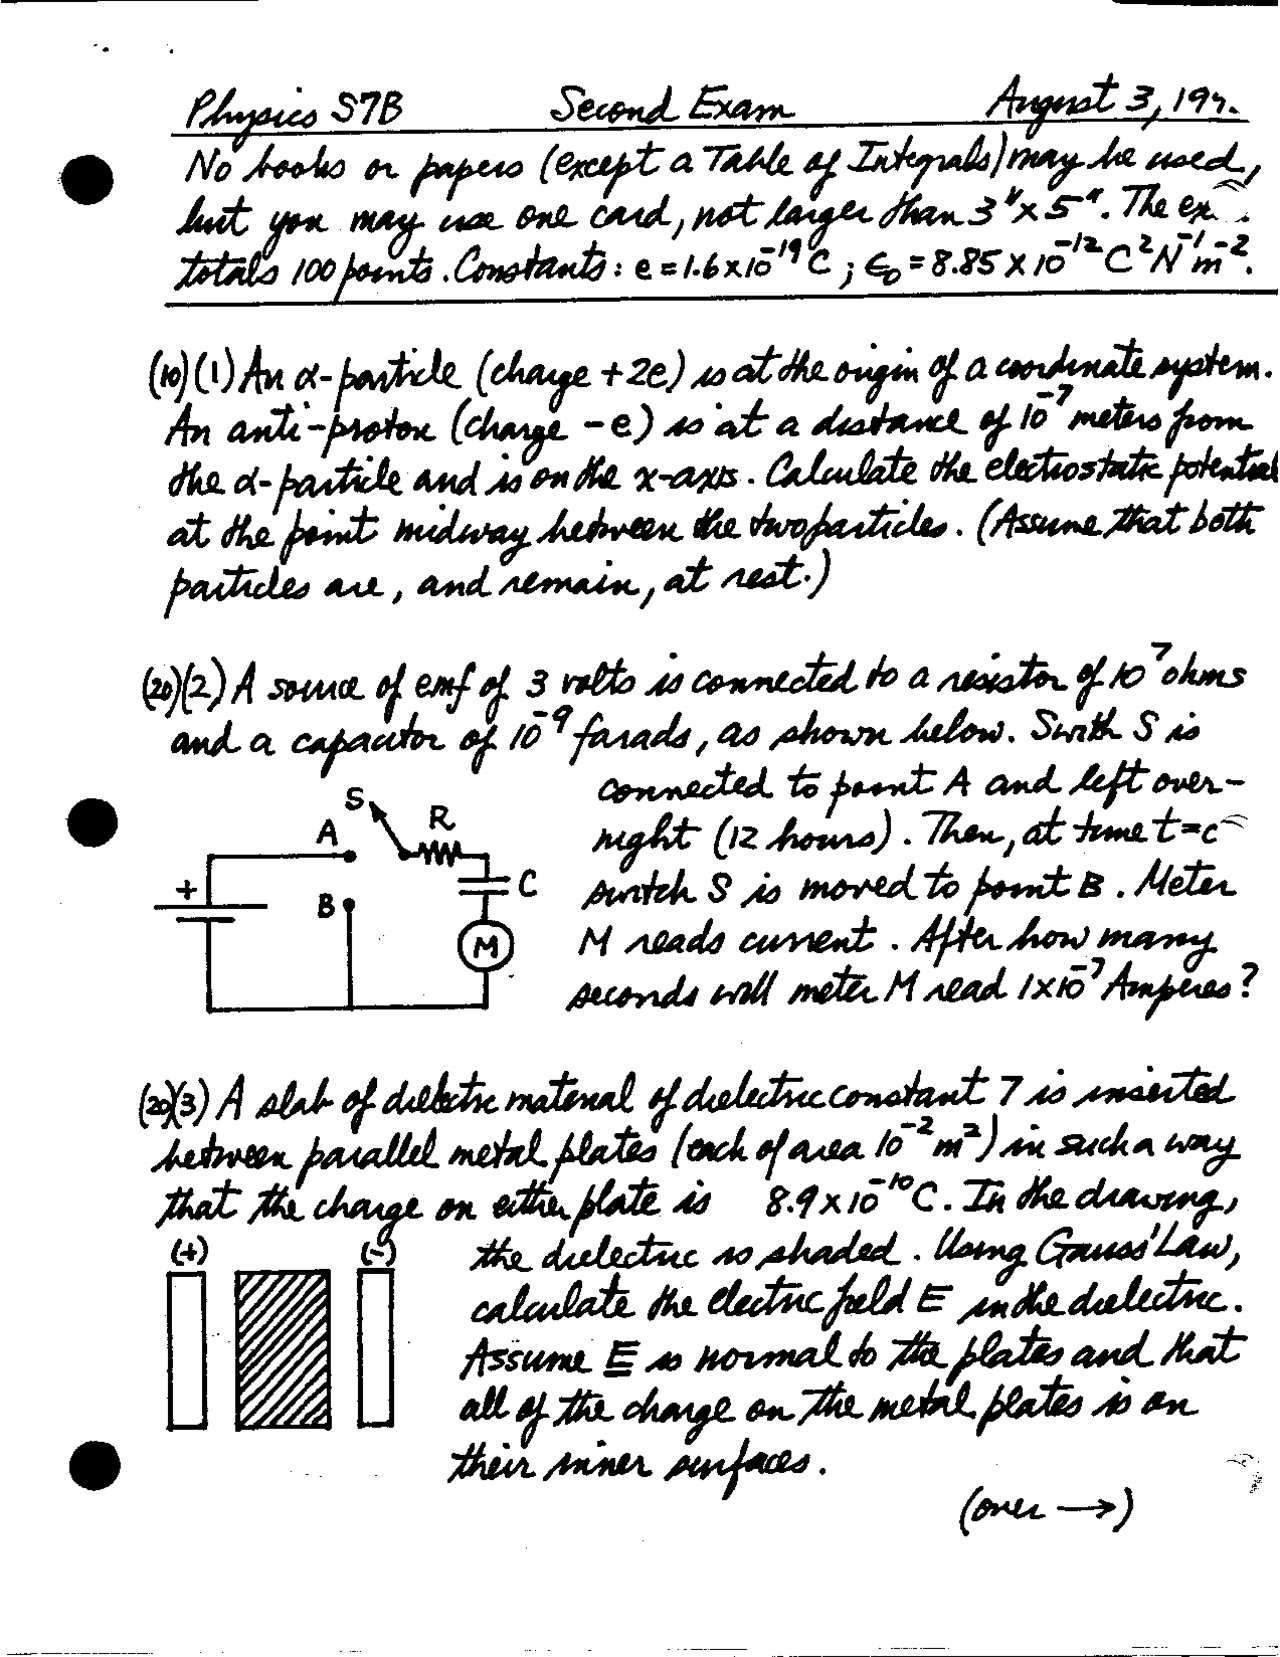 Physics S7B Second Exam August 3, 199.
No books or papers (except a Table of Integrals) may be used,
but you may use one card, not larger than 3" x 5". The ex
totals 100 points. Constants: e = 1.6 x 10⁻¹⁹ C ; ϵ₀ = 8.85 x 10⁻¹² C² N⁻¹ m⁻².
(10) (1) An α-particle (charge +2e) is at the origin of a coordinate system.
An anti-proton (charge -e) is at a distance of 10⁻⁷ meters from
the α-particle and is on the x-axis. Calculate the electrostatic potential
at the point midway between the two particles. (Assume that both
particles are, and remain, at rest.)
(20) (2) A source of emf of 3 volts is connected to a resistor of 10⁷ ohms
and a capacitor of 10⁻⁹ farads, as shown below. Swith S is
connected to point A and left over-
night (12 hours). Then, at time t=
switch S is moved to point B. Meter
M reads current. After how many
seconds will meter M read 1x10⁻⁷ Amperes?
S
R
A
+
C
B
M
(20) (3) A slab of dielectric material of dielectric constant 7 is inserted
between parallel metal plates (each of area 10⁻² m²) in such a way
that the charge on either plate is 8.9 x 10⁻¹⁰ C. In the drawing,
the dielectric is shaded. Using Gauss' Law,
calculate the electric field E in the dielectric.
Assume E is normal to the plates and that
all of the charge on the metal plates is on
their inner surfaces.
(+) (-)
(over →)